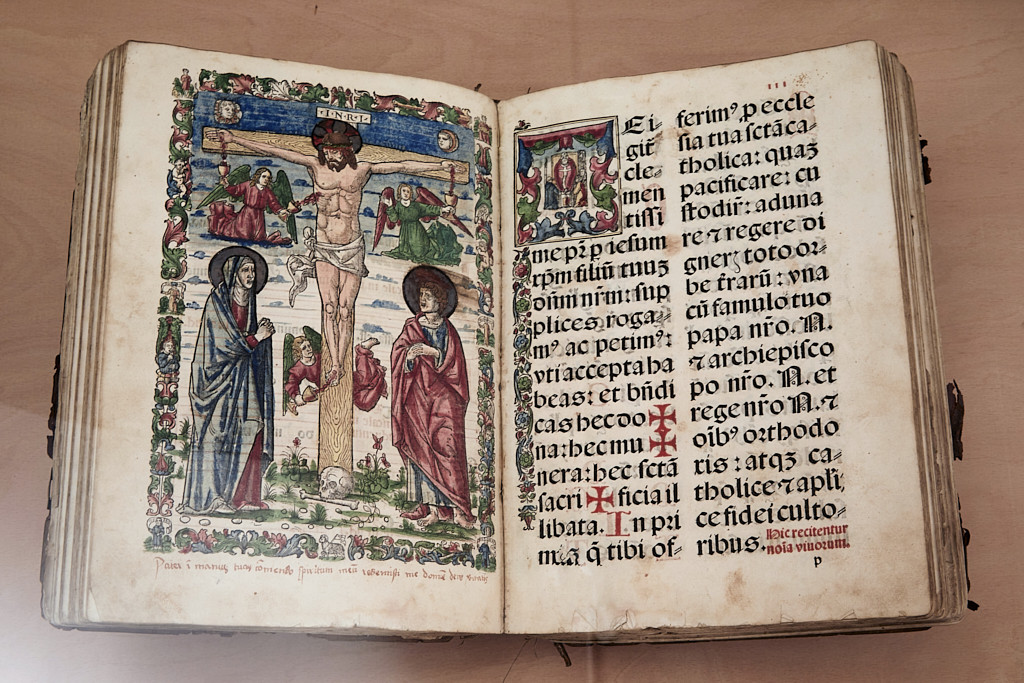 I·N·R·I·
Pater ī manus tuas cōmendo spiritum meū redemisti me domine deus veritatis
III
Ei⸗
git̄
cle⸗
men
tiſſi
me pr̄ p ieſum
xp̄m filiū tuuꝫ
dn̄m nr̄m: ſup
plices roga⸗
mꝰ ac petimꝰ:
vti accepta ha
beas: et bn̄di
cas hec do ✠
na: hec mu ✠
nera: hec ſctā
ſacri ✠ ficia il
libata. In pri
mis q̄ tibi of⸗
ferimꝰ p eccle
ſia tua ſctā ca⸗
tholica: quaꝫ
pacificare: cu
ſtodir̄: aduna
re ⁊ regere di
gner̄ toto or⸗
be t̄rarū: vna
cū famulo tuo
papa nr̄o. N.
⁊ archiepiſco
po nr̄o. N. et
rege nr̄o N. ⁊
oībꝰ orthodo
xis: atqꝫ ca⸗
tholice ⁊ apl̄i⸗
ce fidei culto⸗
ribus.
Hic recitentur
noīa viuorum.
p